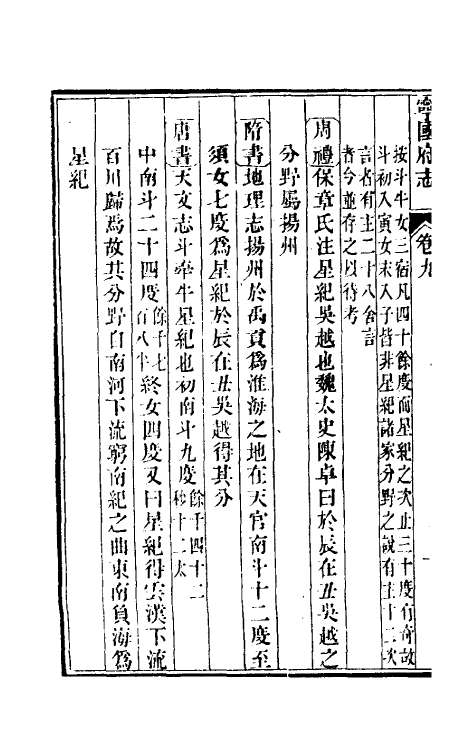 寧國府志 卷九
按斗牛女三宿凡四十餘度而星紀之次止三十度有奇故
斗初入寅女末入子皆非星紀諸家分野之說有主十二次
言者有主二十八舍言
者今並存之以待考
周禮保章氏注星紀吳越也魏太史陳卓曰於辰在丑吳越之
分野屬揚州
隋書地理志揚州於禹貢爲淮海之地在天官南斗十二度至
須女七度爲星紀於辰在丑吳越得其分
唐書天文志斗牽牛星紀也初南斗九度餘千四十二秒十二太
中南斗二十四度餘千七百八半終女四度又曰星紀得雲漢下流
百川歸焉故其分野自南河下流窮南紀之曲東南負海爲
星紀